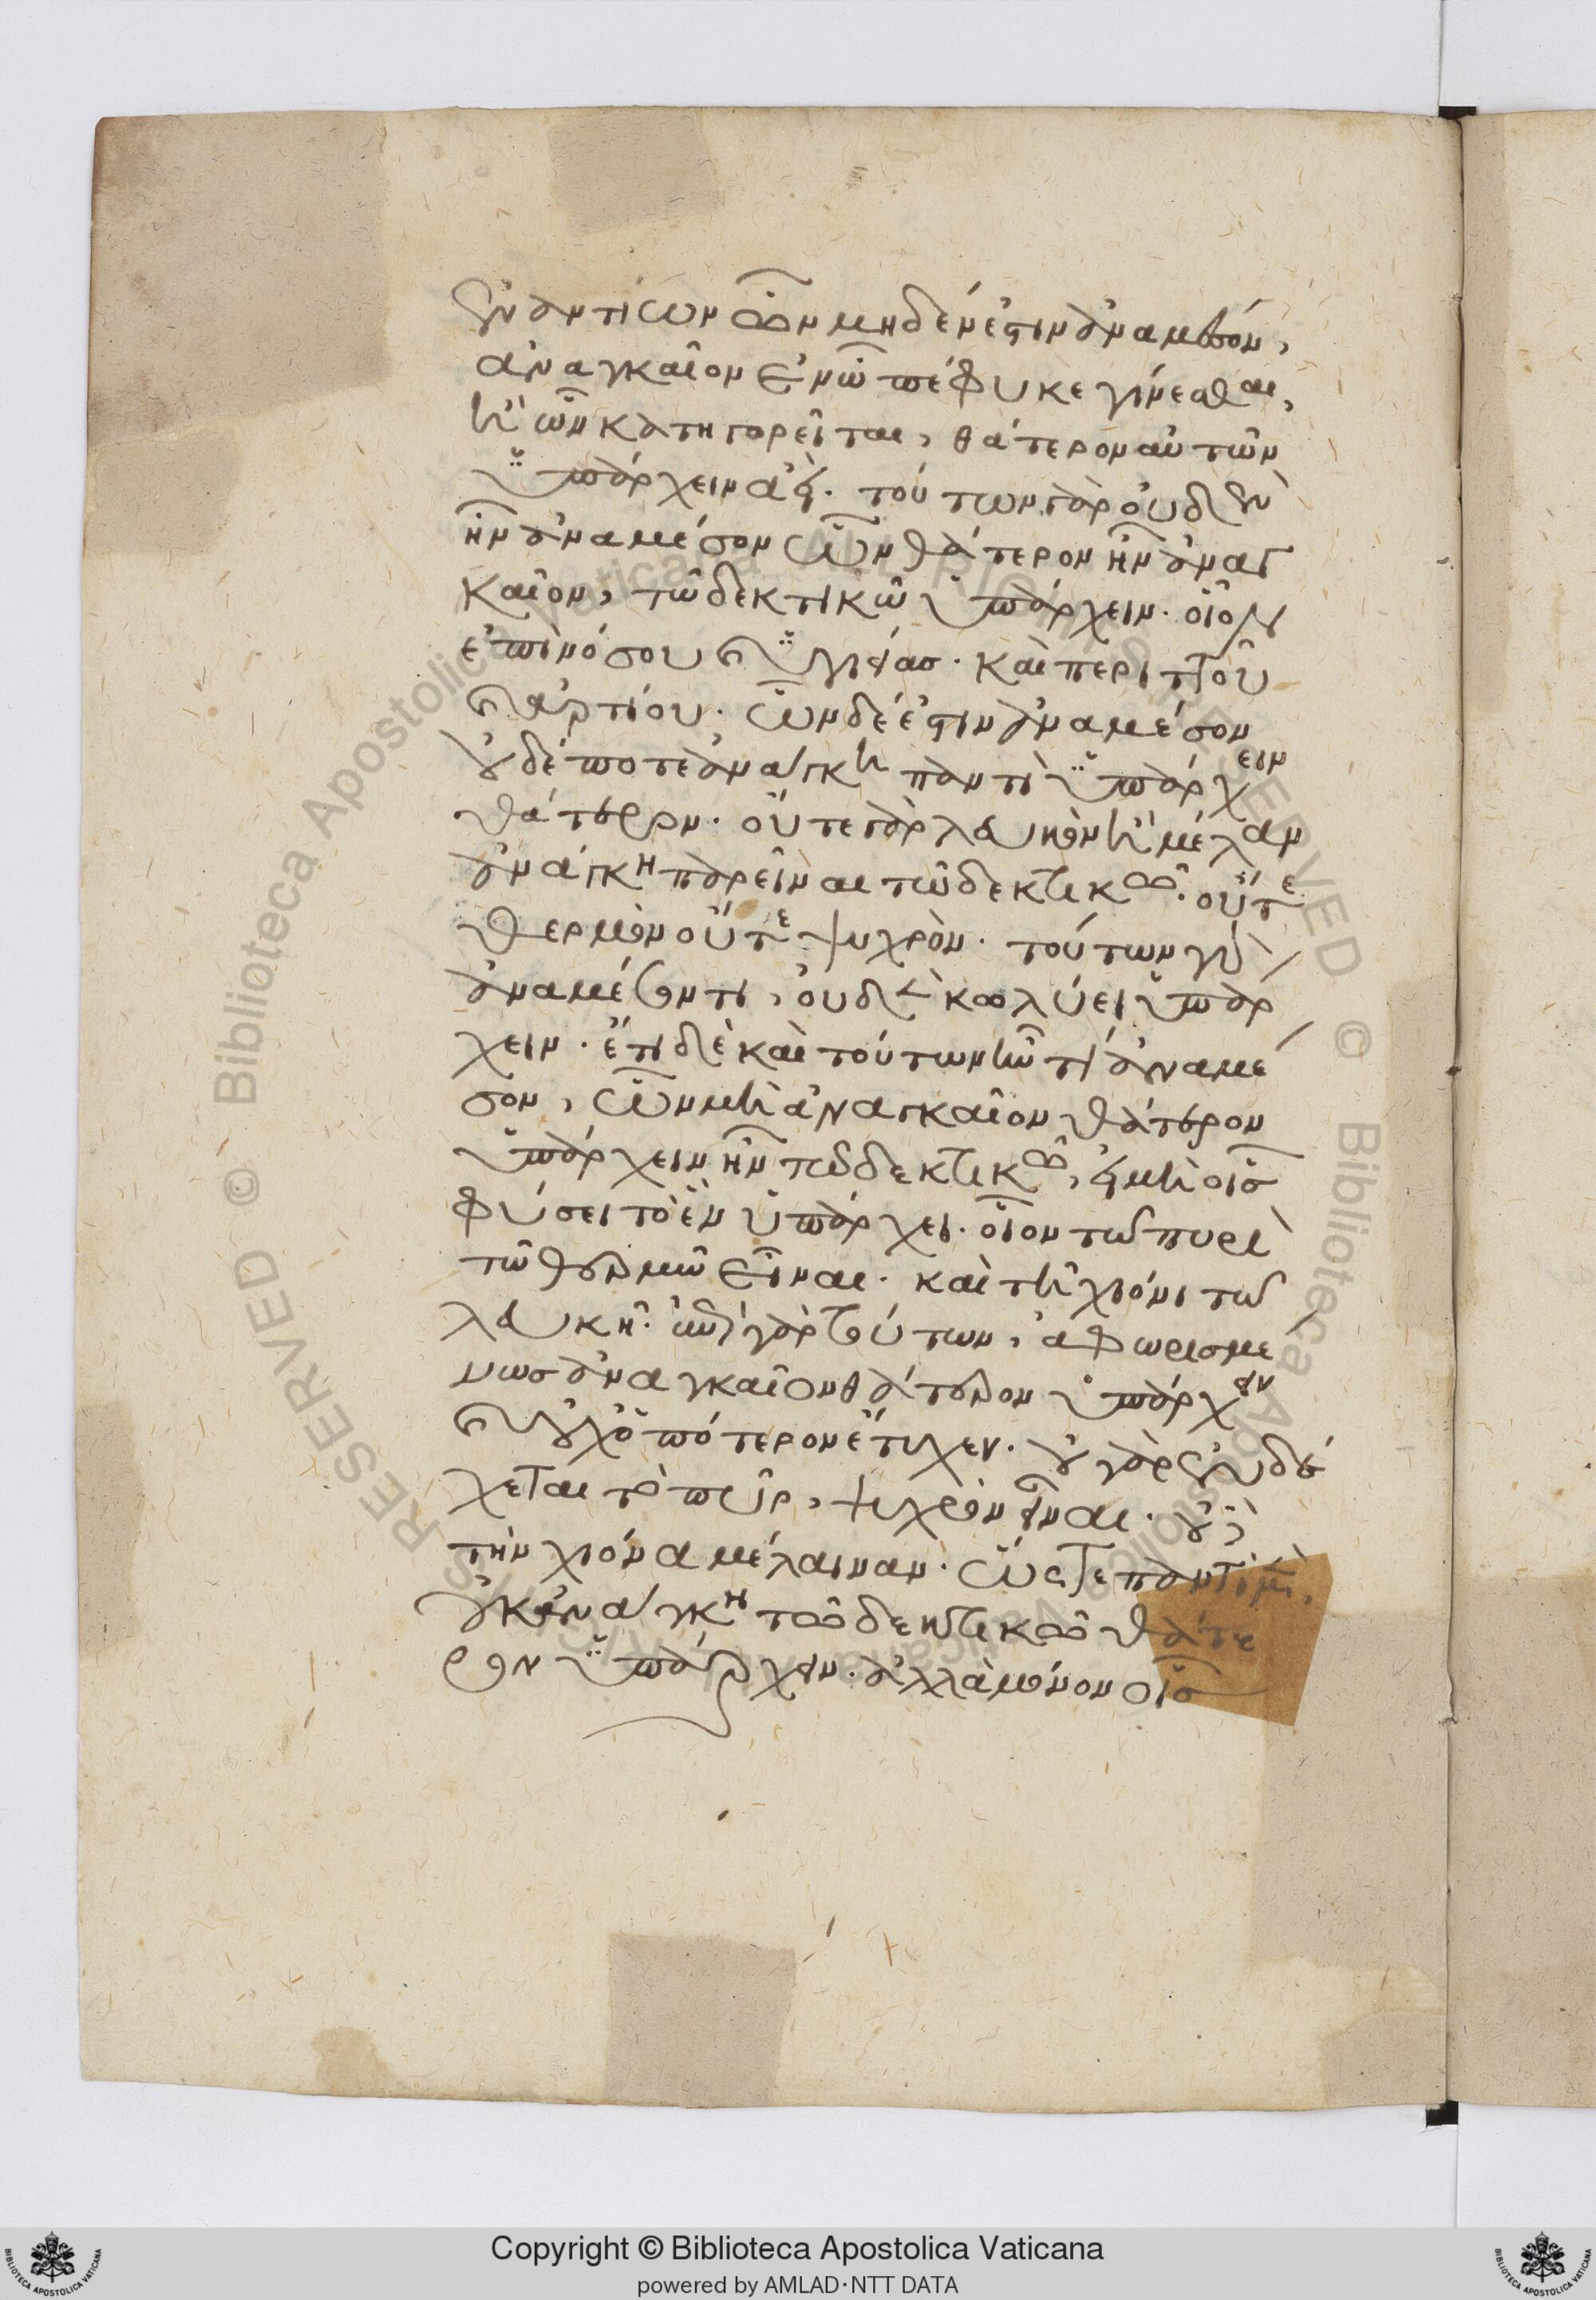 ἐναντίων ὧν μηδέν ἐστιν ἀναμέσον,
ἀναγκαῖον ἐν ᾧ πέφυκε γίνεσθαι,
ἢ ὧν κατηγορεῖται, θάτερον αὐτῶν
ὑπάρχειν ἀεί. τούτων γὰρ οὐδὲν
ἦν ἀναμέσον ὧν θάτερον ἦν ἀναγ
καῖον, τῶ δεκτικῶ ὑπάρχειν. οἷον
ἐπὶ νόσου καὶ ὑγείας. καὶ περιττοῦ
καὶ ἀρτίου. ὧν δέ ἐστιν ἀναμέσον
οὐδέποτε ἀνάγκη παντὶ ὑπάρχειν
θάτερον. οὔτε γὰρ λευκὸν ἢ μέλαν
ἀνάγκη παρεῖναι τῶ δεκτικῶ. οὔτε
θερμὸν οὔτε ψυχρόν. τούτων γὰρ
ἀναμέσον τι, οὐδὲν κωλύει ὑπάρ
χειν. ἔτι δὲ καὶ τούτων ἦν τί ἀναμέ
σον, ὧν μὴ ἀναγκαῖον θάτερον
ὑπάρχειν ἦν τῶ δεκτικῶ, εἰ μὴ οἷς
φύσει τὸ ἓν ὑπάρχει. οἷον τῶ πυρὶ
τῶ θερμῶ εἶναι. καὶ τῆ χιόνι τῶ
λευκῆ. ἐπὶ γὰρ τούτων, ἀφωρισμέ
νως ἀναγκαῖον θάτερον ὑπάρχειν
καὶ οὐχ ὁπότερον ἔτυχεν. οὐ γὰρ ἐνδέ
χεται τὸ πῦρ, ψυχρὸν εἶναι. οὐδὲ
τὴν χιόνα μέλαιναν. ὥστε παντὶ μὲν
οὐκ ἀνάγκη τῶ δεκτικῶ θάτε
ρον ὑπάρχειν. ἀλλὰ μόνον οἷς
Copyright © Biblioteca Apostolica Vaticana
powered by AMLAD·NTT DATA